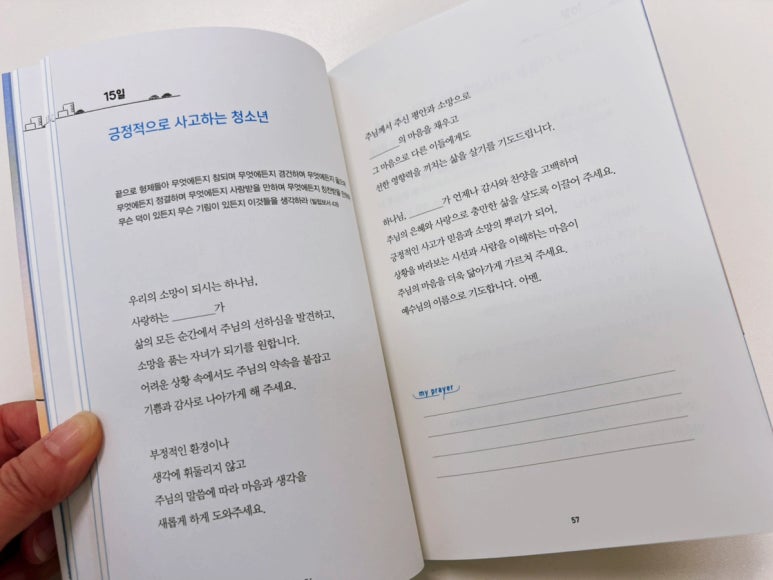 15일
긍정적으로 사고하는 청소년
끝으로 형제들아 무엇에든지 참되며 무엇에든지 경건하며 무엇에든지
무엇에든지 정결하며 무엇에든지 사랑받을 만하며 무엇에든지 칭찬받을
무슨 덕이 있든지 무슨 기림이 있든지 이것들을 생각하라 (빌립보서 4:8)
우리의 소망이 되시는 하나님,
사랑하는 ________가
삶의 모든 순간에서 주님의 선하심을 발견하고,
소망을 품는 자녀가 되기를 원합니다.
어려운 상황 속에서도 주님의 약속을 붙잡고
기쁨과 감사로 나아가게 해 주세요.
부정적인 환경이나
생각에 휘둘리지 않고
주님의 말씀에 따라 마음과 생각을
새롭게 하게 도와주세요.
주님께서 주신 평안과 소망으로
________의 마음을 채우고
그 마음으로 다른 이들에게도
선한 영향력을 끼치는 삶을 살기를 기도드립니다.
하나님, ________가 언제나 감사와 찬양을 고백하며
주님의 은혜와 사랑으로 충만한 삶을 살도록 이끌어 주세요.
긍정적인 사고가 믿음과 소망의 뿌리가 되어,
상황을 바라보는 시선과 사람을 이해하는 마음이
주님의 마음을 더욱 닮아가게 가르쳐 주세요.
예수님의 이름으로 기도합니다. 아멘.
my prayer
57